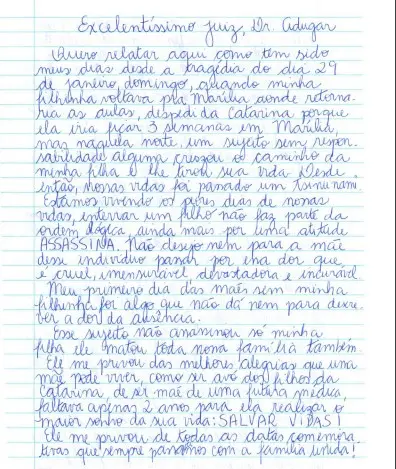 Excelentíssimo Juiz, Dr. Adugar
Quero relatar aqui como tem sido
meus dias desde a tragédia do dia 29
de janeiro, domingo, quando minha
filhinha voltava pra Marília aonde retorna-
ria as aulas, despedi da Catarina porque
ela iria ficar 3 semanas em Marília,
mas naquela noite, um sujeito sem respon-
sabilidade alguma cruzou o caminho da
minha filha e lhe tirou sua vida. Desde
então, nossas vidas foi panado um tsunami.
Estamos vivendo os piores dias de nossas
vidas, enterrar um filho não faz parte da
ordem lógica, ainda mais por uma atitude
ASSASSINA. Não desejo nem para a mãe
desse indivíduo passar por essa dor que
é cruel, imensurável, devastadora e incurável
Meu primeiro dia das mães sem minha
filhinha foi algo que não dá nem para descre-
ver a dor da ausência.
Esse sujeito não assassinou só minha
filha ele matou toda nossa família também.
Ele me privou das melhores alegrias que uma
mãe pode viver, como ser avó dos filhos da
Catarina, de ser mãe de uma futura médica,
faltava apenas 2 anos para ela realizar o
maior sonho da sua vida: SALVAR VIDAS!
Ele me privou de todas as datas comemora-
tivas que sempre passamos com a família unida!